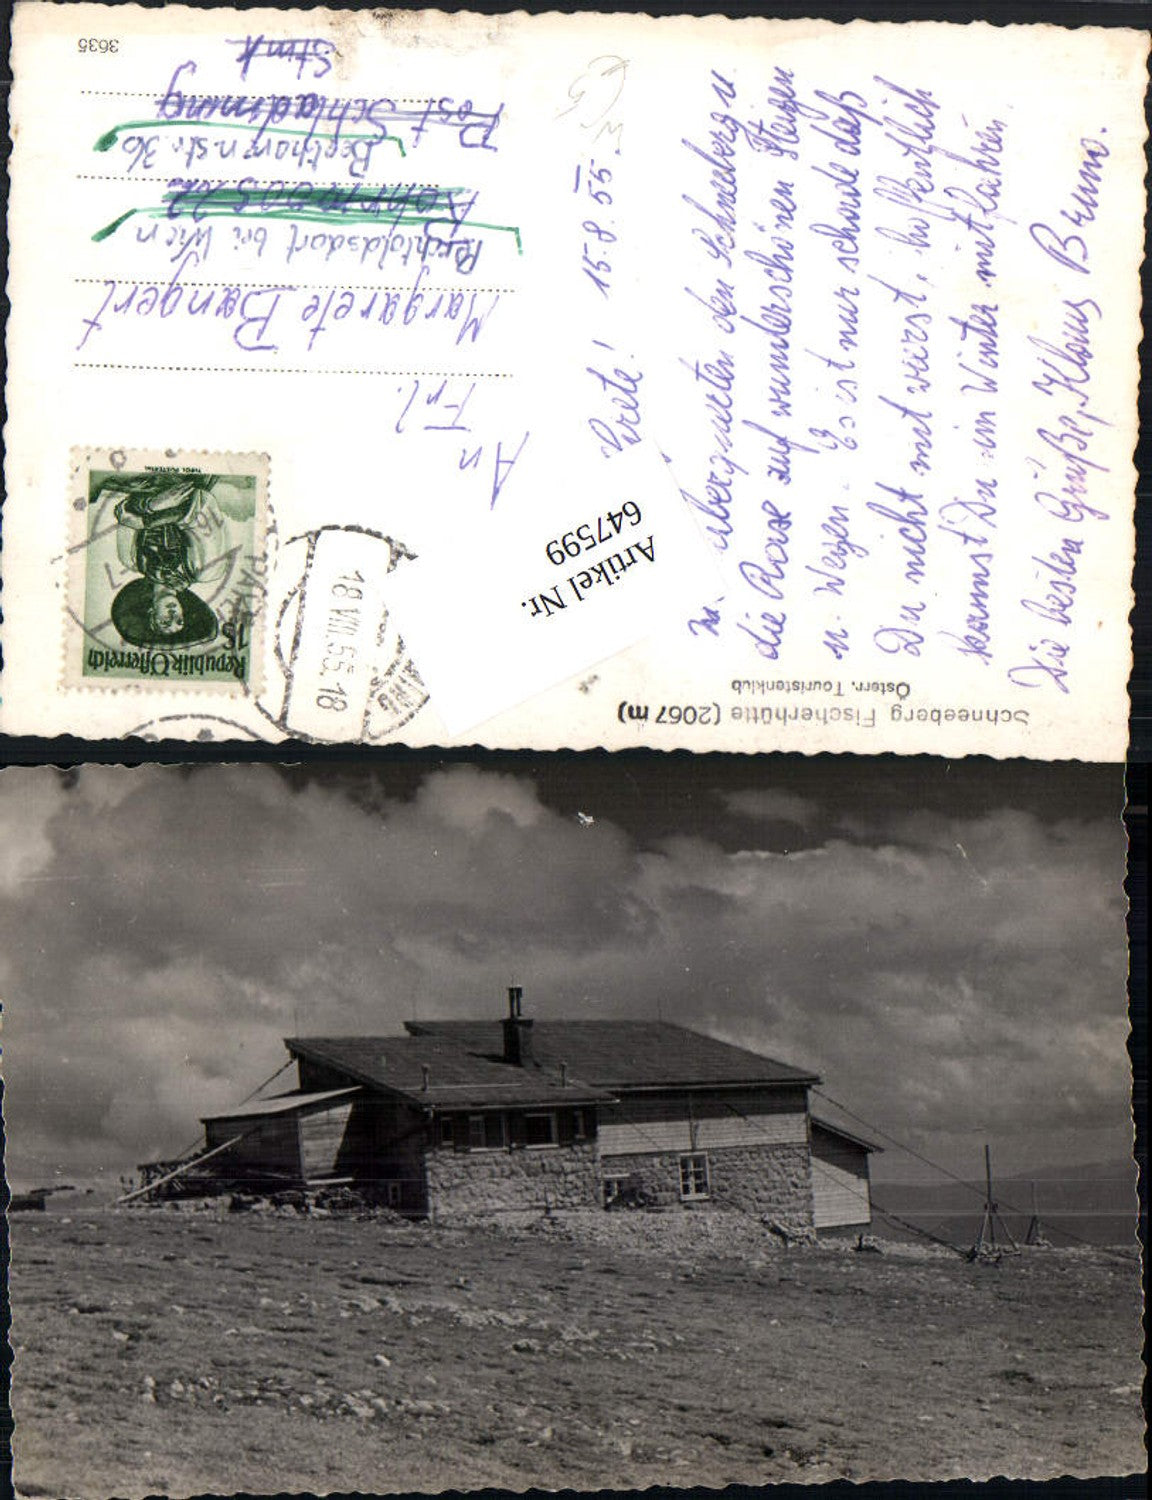 Schneeberg Fischerhütte (2067 m)
Österr. Touristenklub
15.8.55.
Grete!
den Schneeberg u.
die Rax auf wunderschönen Steigen
u. Wegen. Es ist nur schade daß
Du nicht mit warst, hoffentlich
kannst Du im Winter mitfahren.
Die besten Grüße, Klaus Bruno.
Artikel Nr.
647599
Republik Österreich
1S
TIROL PUSTERTAL
18.VIII.55.18
An
Frl.
Margarete Bangert
Perchtoldsdorf bei Wien
Beethovenstr. 36
Post Schladming
Stmk
3635